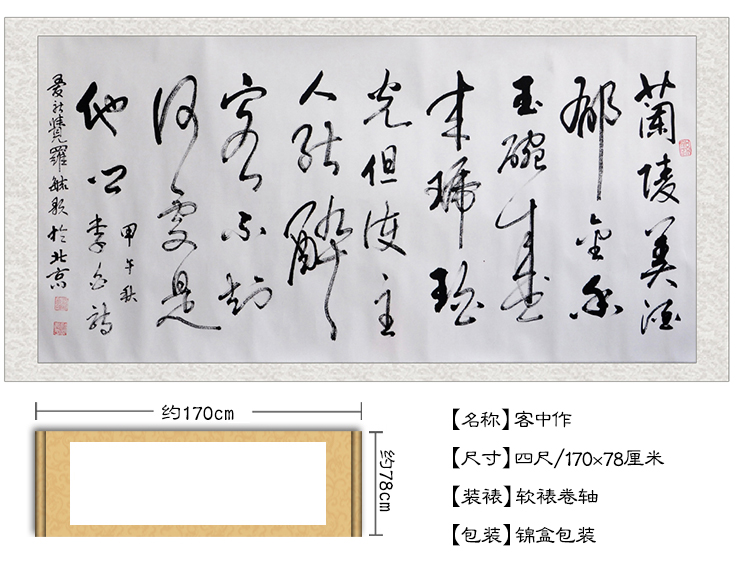 蘭陵美酒
郁金香
玉碗盛
来琥珀
光但使主
人能醉
客不知
何處是
他乡
甲午秋
李白詩
愛新覺羅毓 於北京
约170cm
约78cm
【名称】客中作
【尺寸】四尺/170×78厘米
【装裱】软裱卷轴
【包装】锦盒包装